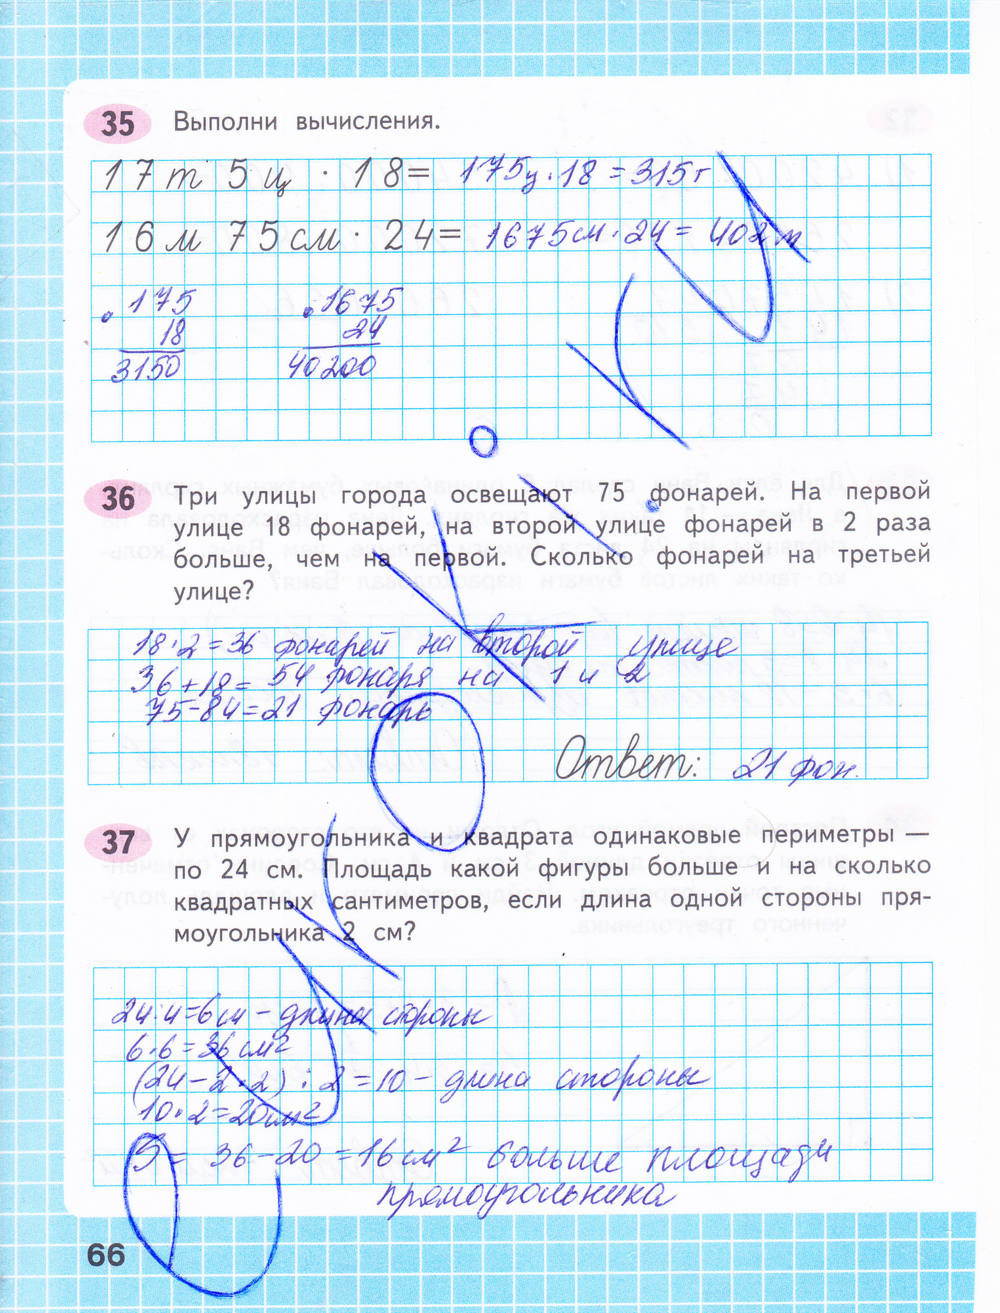 35 Выполни вычисления.
17 т 5 ц · 18 = 175ц · 18 = 315т
16 м 75 см · 24 = 1675см · 24 = 402 м
175
18
3150
1675
24
40200
36 Три улицы города освещают 75 фонарей. На первой
улице 18 фонарей, на второй улице фонарей в 2 раза
больше, чем на первой. Сколько фонарей на третьей
улице?
18 · 2 = 36 фонарей на второй улице
36 + 18 = 54 фонаря на 1 и 2
75 - 84 = 21 фонарь
Ответ: 21 фон.
37 У прямоугольника и квадрата одинаковые периметры —
по 24 см. Площадь какой фигуры больше и на сколько
квадратных сантиметров, если длина одной стороны пря-
моугольника 2 см?
24 : 4 = 6см - длина стороны
6 · 6 = 36 см²
(24 - 2 · 2) : 2 = 10 - длина стороны
10 · 2 = 20см²
S = 36 - 20 = 16 см² больше площади
прямоугольника
66